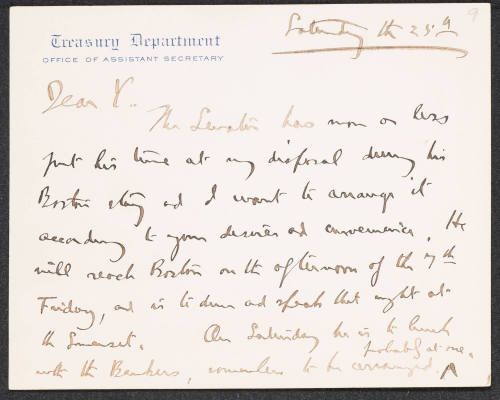 9
Saturday the 25th
Treasury Department
OFFICE OF ASSISTANT SECRETARY
Dear Y..
The Senator has more or less
put his time at my disposal during his
Boston stay and I want to arrange it
according to your desires and convenience. He
will reach Boston on the afternoon of the 7th
Friday, and is to dine and speak that night at
the Somerset. On Saturday he is to lunch
probably at one.
with the Bankers, to be arranged.